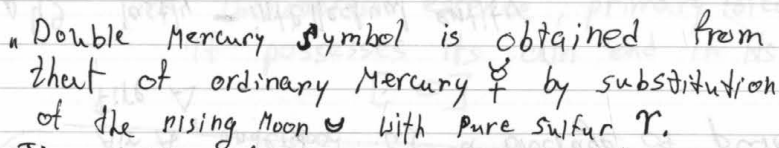 „ Double Mercury Symbol is obtained from
that of ordinary Mercury ☿ by substitution
of the rising Moon ◡ with pure sulfur ♈.